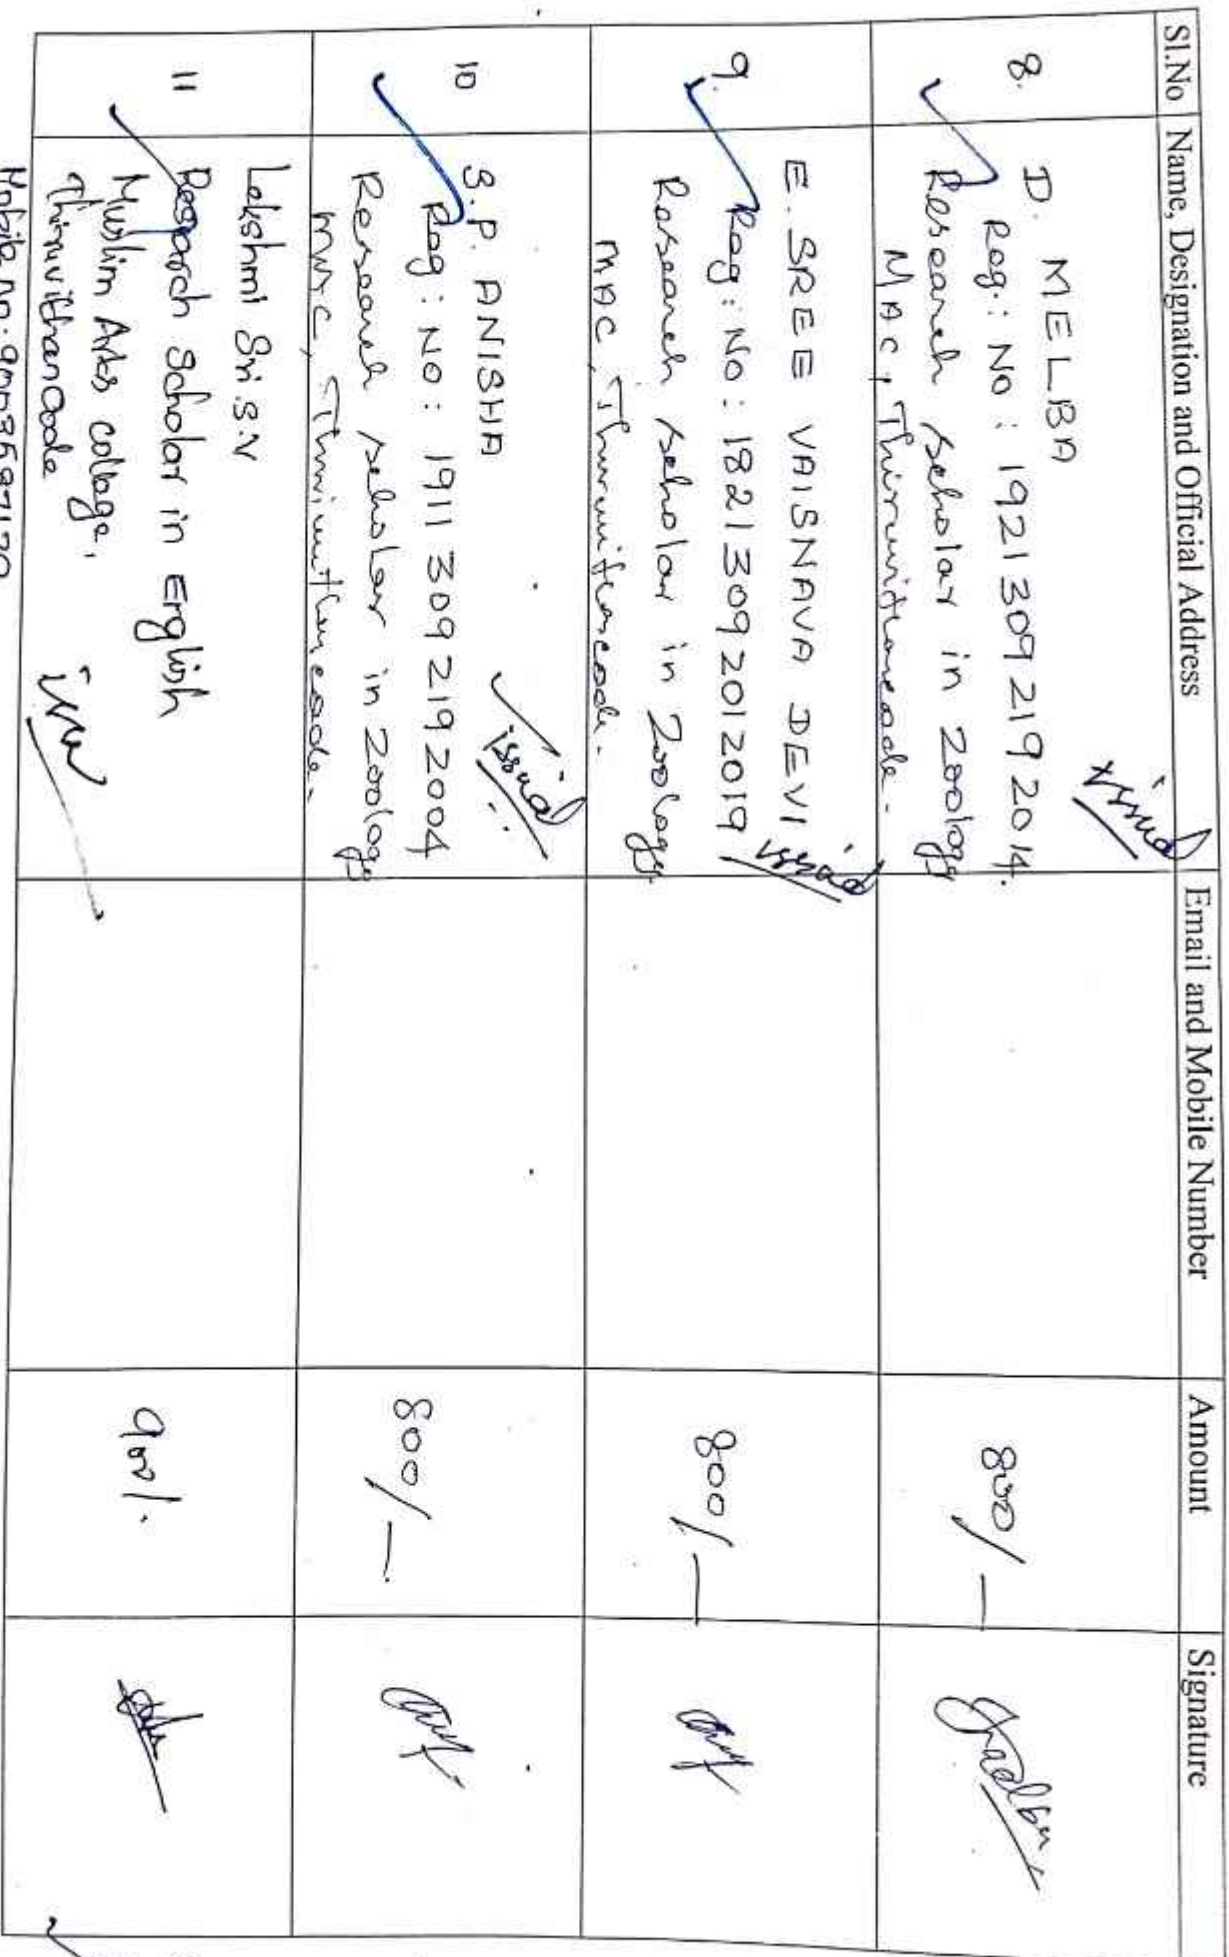 Sl.No Name, Designation and Official Address Email and Mobile Number Amount Signature
issued
8. D. MELBA
Reg: NO: 19213092192014.
Research scholar in Zoology
MAC, Thiruvithancode.
800/-
9. E. SREE VAISNAVA DEVI
Reg: No: 18213092012019
issued
Research scholar in Zoology
MAC, Thiruvithancode.
800/-
issued
10 S.P. ANISHA
Reg: NO: 19113092192004
Research scholar in Zoology
Thiruvithancode.
800/-.
11 Lekshmi Sri.S.V
Research Scholar in English
Muslim Arts college,
Thiruvithancode
900/.
Mobile no: 9003587120